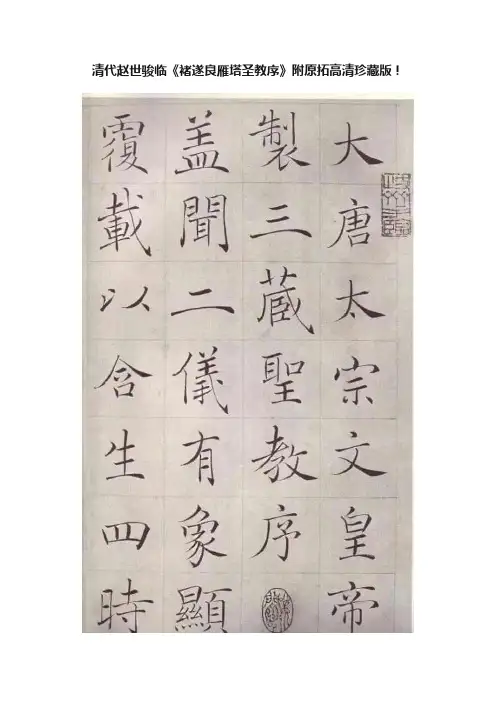 清代赵世骏临《褚遂良雁塔圣教序》附原拓高清珍藏版！
大唐太宗文皇帝
製三蔵聖教序
盖聞二儀有象顯
覆載以含生四時